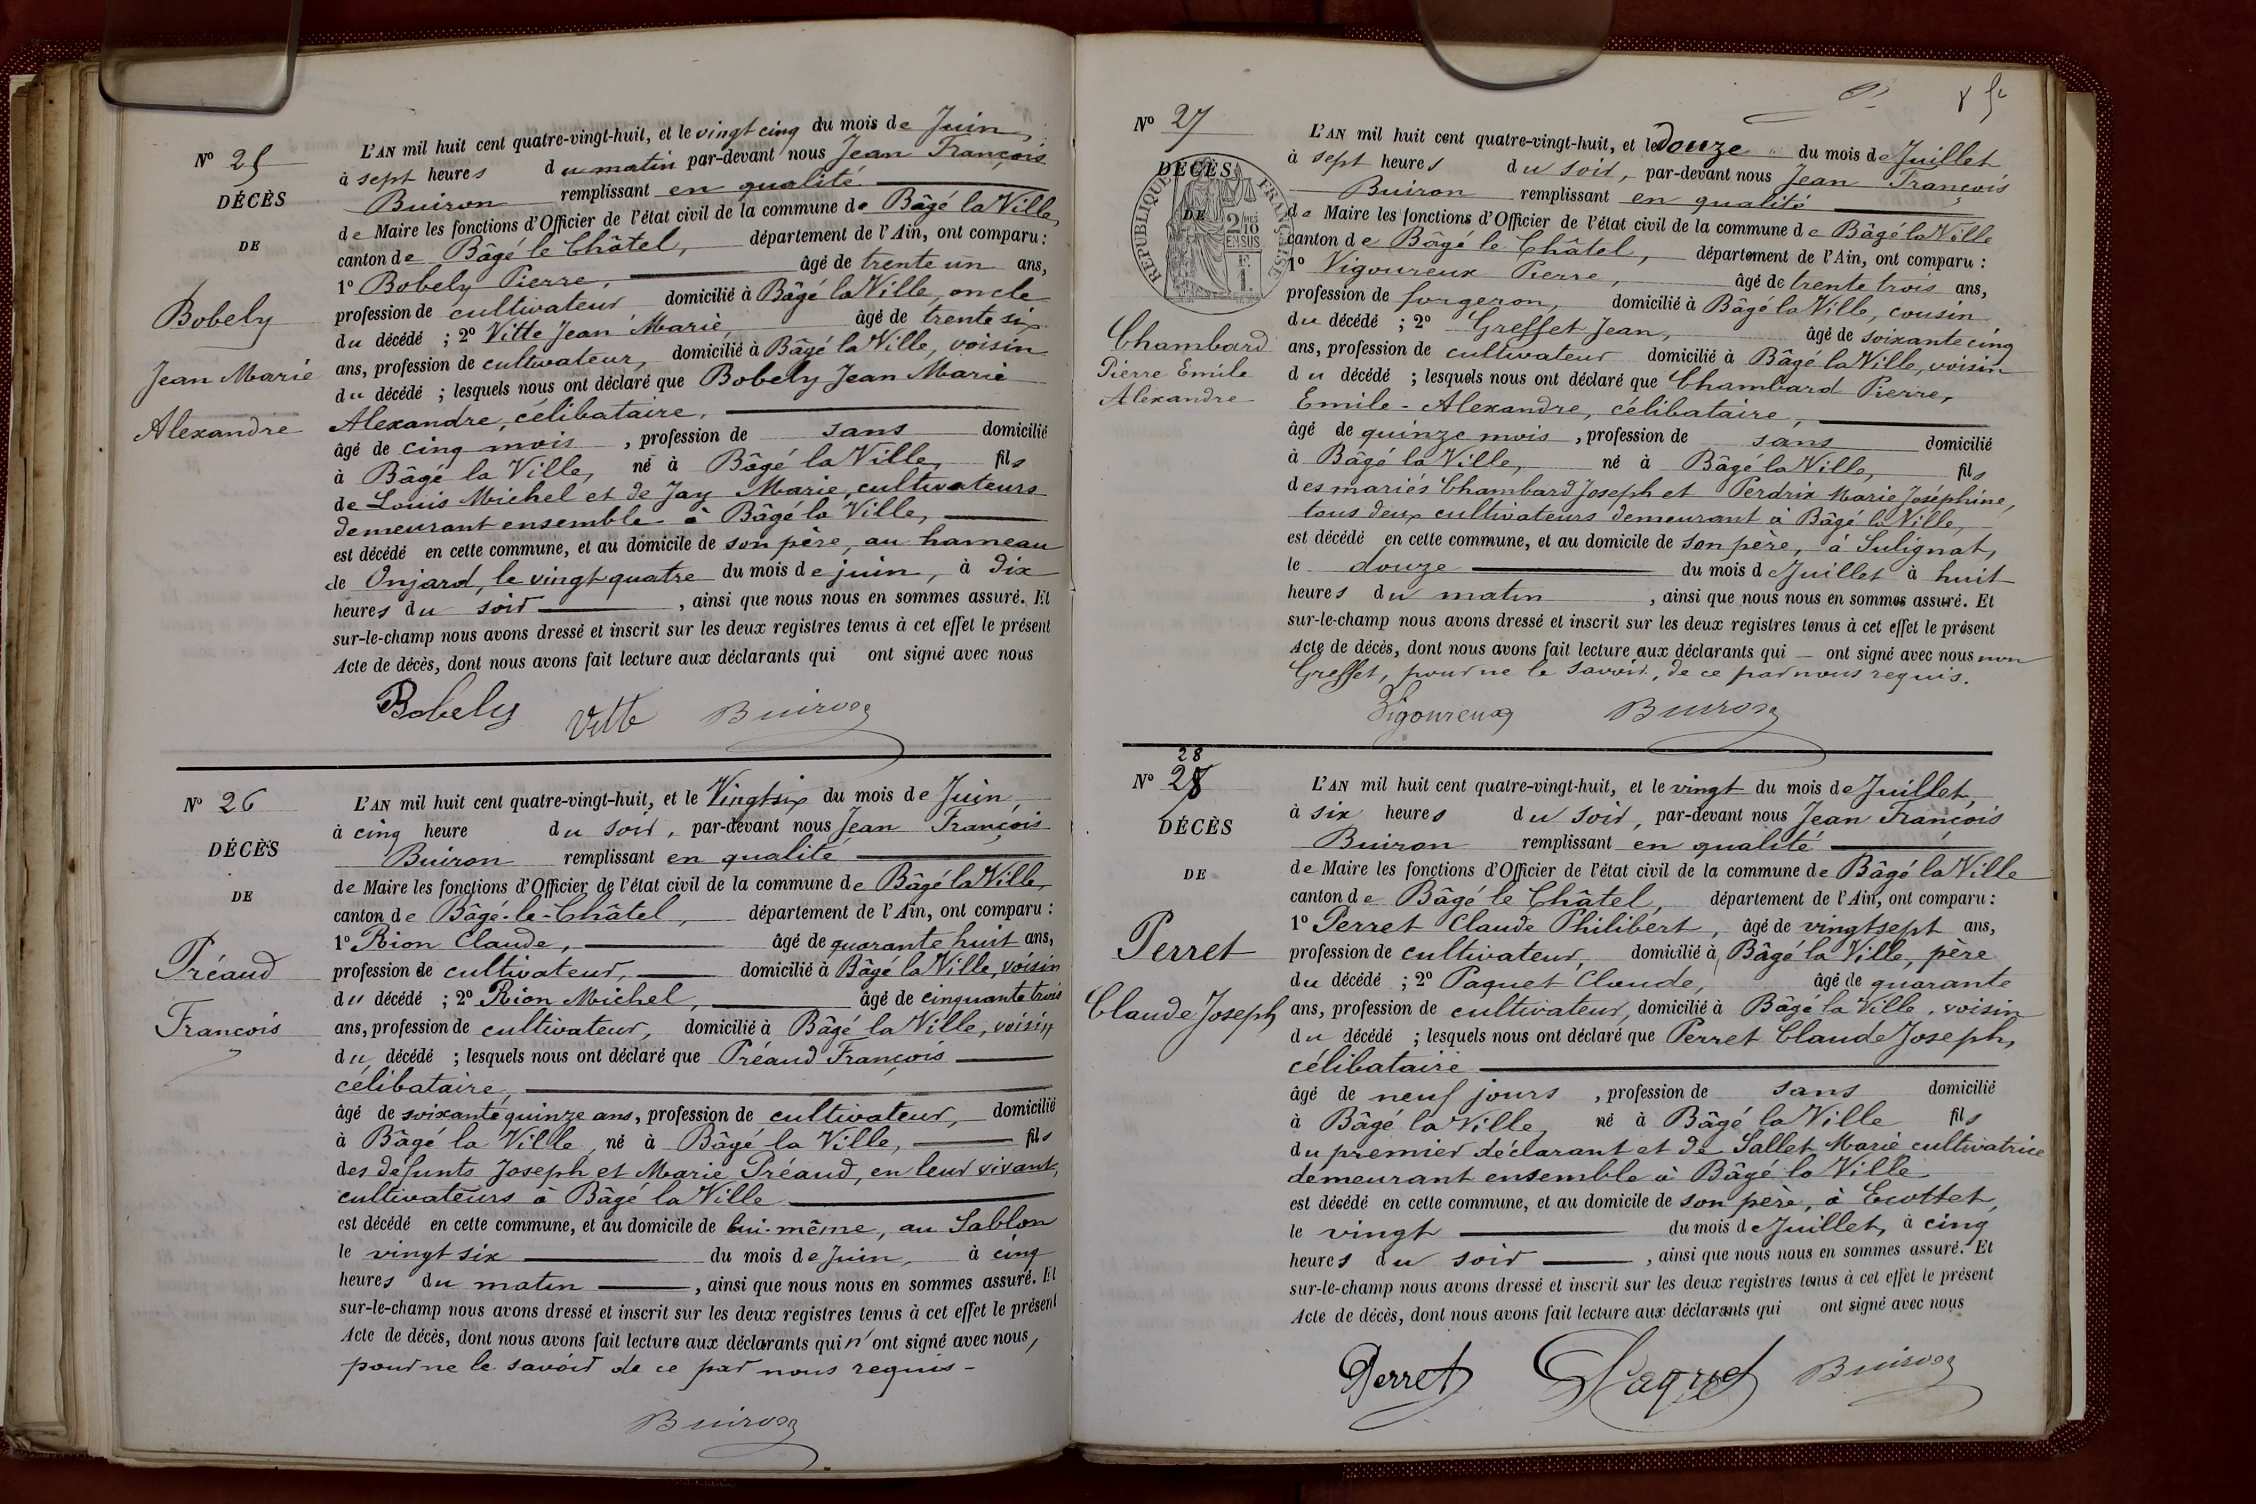 Nº 25
DÉCÈS
DE
Bobely
Jean Marie
Alexandre
L'AN mil huit cent quatre-vingt-huit, et le vingt cinq du mois de Juin,
à sept heures du matin par-devant nous Jean François
Buiron remplissant en qualité
de Maire les fonctions d'Officier de l'état civil de la commune de Bâgé la Ville,
canton de Bâgé le Châtel, département de l'Ain, ont comparu :
1º Bobely Pierre, âgé de trente un ans,
profession de cultivateur domicilié à Bâgé la Ville, oncle
du décédé ; 2º Vitte Jean Marie, âgé de trente six
ans, profession de cultivateur, domicilié à Bâgé la Ville, voisin
du décédé ; lesquels nous ont déclaré que Bobely Jean Marie
Alexandre, célibataire,
âgé de cinq mois, profession de sans domicilié
à Bâgé la Ville, né à Bâgé la Ville, fils
de Louis Michel et de Jay Marie, cultivateurs
demeurant ensemble à Bâgé la Ville,
est décédé en cette commune, et au domicile de son père, au hameau
de Onjard, le vingt quatre du mois de juin, à dix
heures du soir, ainsi que nous nous en sommes assuré. Et
sur-le-champ nous avons dressé et inscrit sur les deux registres tenus à cet effet le présent
Acte de décès, dont nous avons fait lecture aux déclarants qui ont signé avec nous
Bobely Vitte Buiron
Nº 26
DÉCÈS
DE
Préaud
François
L'AN mil huit cent quatre-vingt-huit, et le Vingt six du mois de Juin,
à cinq heure du soir, par-devant nous Jean François
Buiron remplissant en qualité
de Maire les fonctions d'Officier de l'état civil de la commune de Bâgé la Ville,
canton de Bâgé-le-Châtel, département de l'Ain, ont comparu :
1º Rion Claude, âgé de quarante huit ans,
profession de cultivateur, domicilié à Bâgé la Ville, voisin
du décédé ; 2º Rion Michel, âgé de cinquante trois
ans, profession de cultivateur, domicilié à Bâgé la Ville, voisin
du décédé ; lesquels nous ont déclaré que Préaud François
célibataire,
âgé de soixante quinze ans, profession de cultivateur, domicilié
à Bâgé la Ville, né à Bâgé la Ville, fils
des défunts Joseph et Marie Préaud, en leur vivant,
cultivateurs à Bâgé la Ville
est décédé en cette commune, et au domicile de lui-même, au Sablon
le vingt six du mois de Juin, à cinq
heures du matin, ainsi que nous nous en sommes assuré. Et
sur-le-champ nous avons dressé et inscrit sur les deux registres tenus à cet effet le présent
Acte de décès, dont nous avons fait lecture aux déclarants qui n'ont signé avec nous,
pour ne le savoir de ce par nous requis -
Buiron
Nº 27
DÉCÈS
DE
RÉPUBLIQUE FRANÇAISE
2/10 EN SUS
F. 1.
Chambard
Pierre Emile
Alexandre
L'AN mil huit cent quatre-vingt-huit, et le douze du mois de Juillet
à sept heures du soir, par-devant nous Jean François
Buiron remplissant en qualité
de Maire les fonctions d'Officier de l'état civil de la commune de Bâgé la Ville
canton de Bâgé le Châtel, département de l'Ain, ont comparu :
1º Vigoureux Pierre, âgé de trente trois ans,
profession de forgeron, domicilié à Bâgé la Ville, cousin
du décédé ; 2º Greffet Jean, âgé de soixante cinq
ans, profession de cultivateur domicilié à Bâgé la Ville, voisin
du décédé ; lesquels nous ont déclaré que Chambard Pierre,
Emile-Alexandre, célibataire,
âgé de quinze mois, profession de sans domicilié
à Bâgé la Ville, né à Bâgé la Ville, fils
des mariés Chambard Joseph et Perdrix Marie Joséphine,
tous deux cultivateurs demeurant à Bâgé la Ville,
est décédé en cette commune, et au domicile de son père, à Sulignat,
le douze du mois de Juillet à huit
heures du matin, ainsi que nous nous en sommes assuré. Et
sur-le-champ nous avons dressé et inscrit sur les deux registres tenus à cet effet le présent
Acte de décès, dont nous avons fait lecture aux déclarants qui ont signé avec nous non
Greffet, pour ne le savoir, de ce par nous requis.
Vigoureux Buiron
28
Nº 28
DÉCÈS
DE
Perret
Claude Joseph
L'AN mil huit cent quatre-vingt-huit, et le vingt du mois de Juillet,
à six heures du soir, par-devant nous Jean François
Buiron remplissant en qualité
de Maire les fonctions d'Officier de l'état civil de la commune de Bâgé la Ville
canton de Bâgé le Châtel, département de l'Ain, ont comparu :
1º Perret Claude Philibert, âgé de vingt sept ans,
profession de cultivateur, domicilié à Bâgé la Ville, père
du décédé ; 2º Paquet Claude, âgé de quarante
ans, profession de cultivateur, domicilié à Bâgé la Ville, voisin
du décédé ; lesquels nous ont déclaré que Perret Claude Joseph,
célibataire
âgé de neuf jours, profession de sans domicilié
à Bâgé la Ville, né à Bâgé la Ville fils
du premier déclarant et de Sallet Marie cultivatrice
demeurant ensemble à Bâgé la Ville
est décédé en cette commune, et au domicile de son père, à Ecottet,
le vingt du mois de Juillet, à cinq
heures du soir, ainsi que nous nous en sommes assuré. Et
sur-le-champ nous avons dressé et inscrit sur les deux registres tenus à cet effet le présent
Acte de décès, dont nous avons fait lecture aux déclarants qui ont signé avec nous
Perret Paquet Buiron